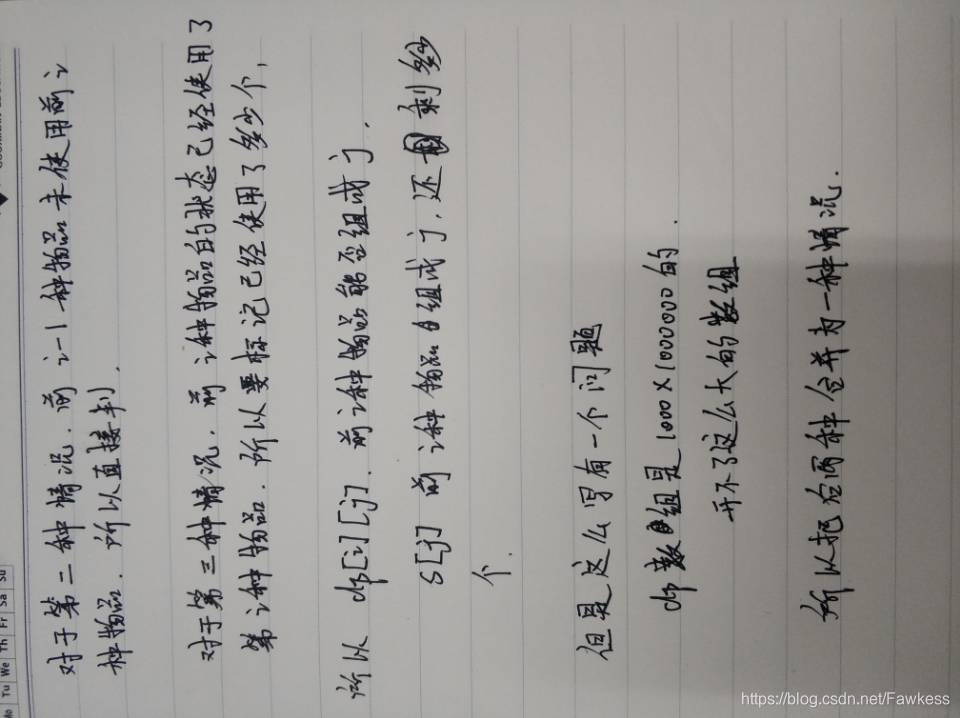 Mo Tu We Th Fr Sa Su
对于第二种情况，前i-1种物品未使用前i
种物品，所以直接判，
对于第三种情况，前i种物品的状态已经使用了
第i种物品，所以要标记已经使用了多少个，
所以 dp[i][j]，前i种物品能否组成j，
s[j] 前i种物品组成j，还剩多少
个．
但是这么写有一个问题
dp数组是1000×1000000的．
开不了这么大的数组
所以把后两种合并为一种情况．
https://blog.csdn.net/Fawkess